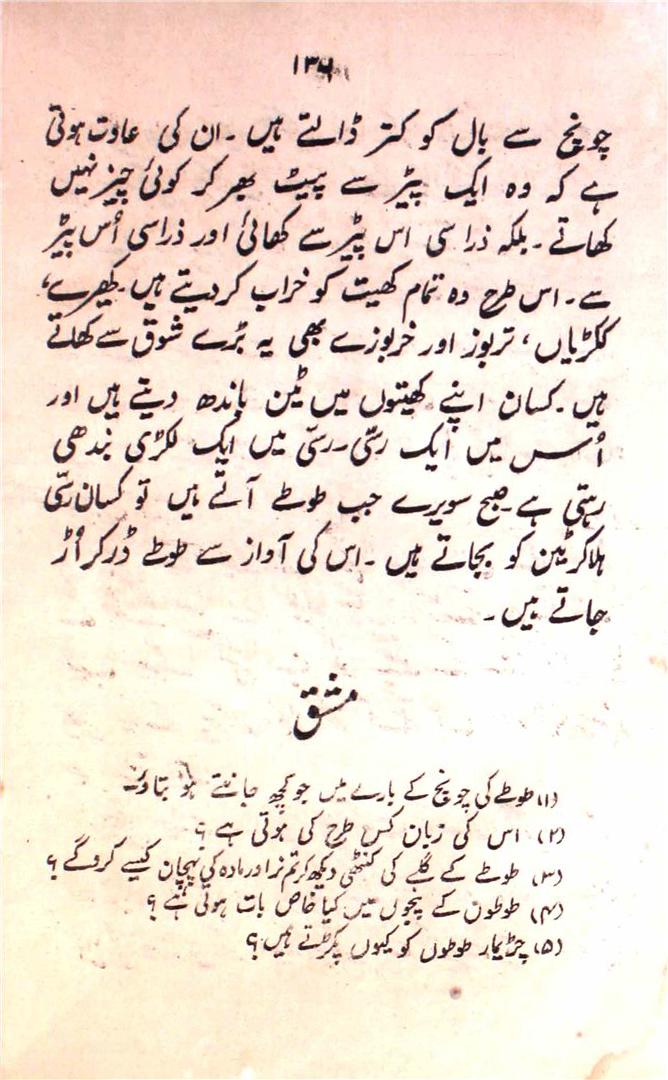 ۱۳۶
چونچ سے بال کو کتر ڈالتے ہیں ۔ ان کی عادت ہوتی
ہے کہ وہ ایک پیڑ سے پیٹ بھر کر کوئی چیز نہیں
کھاتے ۔ بلکہ ذرا سی اس پیڑ سے کھائی اور ذرا سی اُس پیڑ
سے ۔ اس طرح وہ تمام کھیت کو خراب کر دیتے ہیں ۔ کھیرے،
ککڑیاں، تربوز اور خربوزے بھی یہ بڑے شوق سے کھاتے
ہیں ۔ کسان اپنے کھیتوں میں ٹین باندھ دیتے ہیں اور
اُس میں ایک رسّی ۔ رسّی میں ایک لکڑی بندھی
رہتی ہے ۔ صبح سویرے جب طوطے آتے ہیں تو کسان رسّی
ہلا کر ٹین کو بجاتے ہیں ۔ اس کی آواز سے طوطے ڈر کر اُڑ
جاتے ہیں ۔
مشق
(۱) طوطے کی چونچ کے بارے میں جو کچھ جانتے ہو بتاؤ ۔
(۲) اس کی زبان کس طرح کی ہوتی ہے ؟
(۳) طوطے کے گلے کی کنٹھی دیکھ کر تم نر اور مادہ کی پہچان کیسے کرو گے ؟
(۴) طوطوں کے پنجوں میں کیا خاص بات ہوتی ہے ؟
(۵) چڑیمار طوطوں کو کیوں پکڑتے ہیں ؟